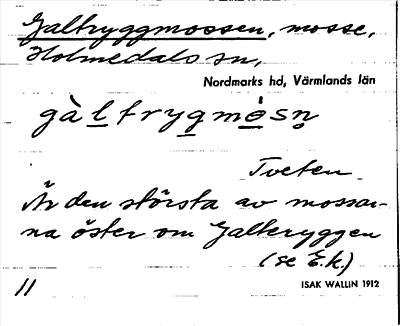 Galtryggmossen, mosse,
Holmedals sn,
Nordmarks hd, Värmlands län
gàltrygmósn̥
Tveten
Är den största av mossar-
na öster om Galtryggen
(se E.k.)
11
ISAK WALLIN 1912